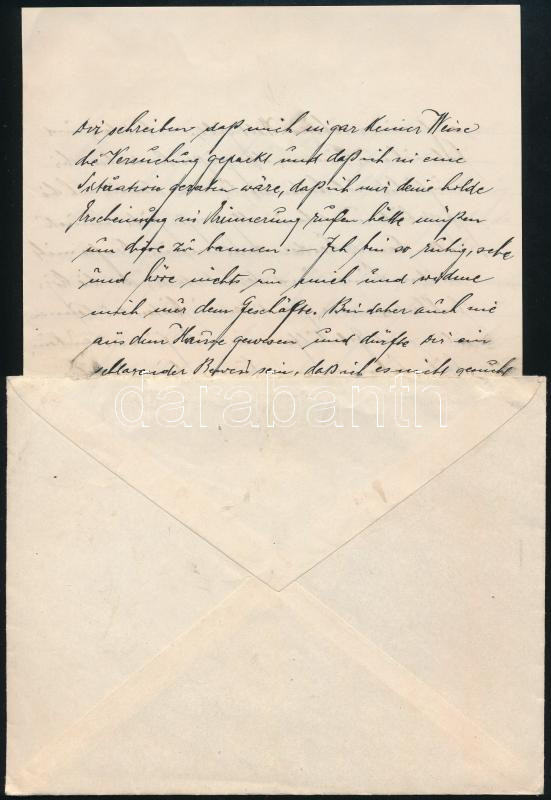 Dir schreiben daß mich in gar keiner Weise
die Versuchung gepackt und daß ich in eine
Situation geraten wäre, daß ich mir deine holde
Erscheinung in Erinnerung rufen hätte müßen
um diese zu bannen. — Ich bin so ruhig, sehe
und höre nichts um mich und widme
mich nur dem Geschäfte. Bin daher auch nie
aus dem Hause gewesen und dürfte Dir ein
Beweis sein, daß ich es nicht gesucht
darabanth